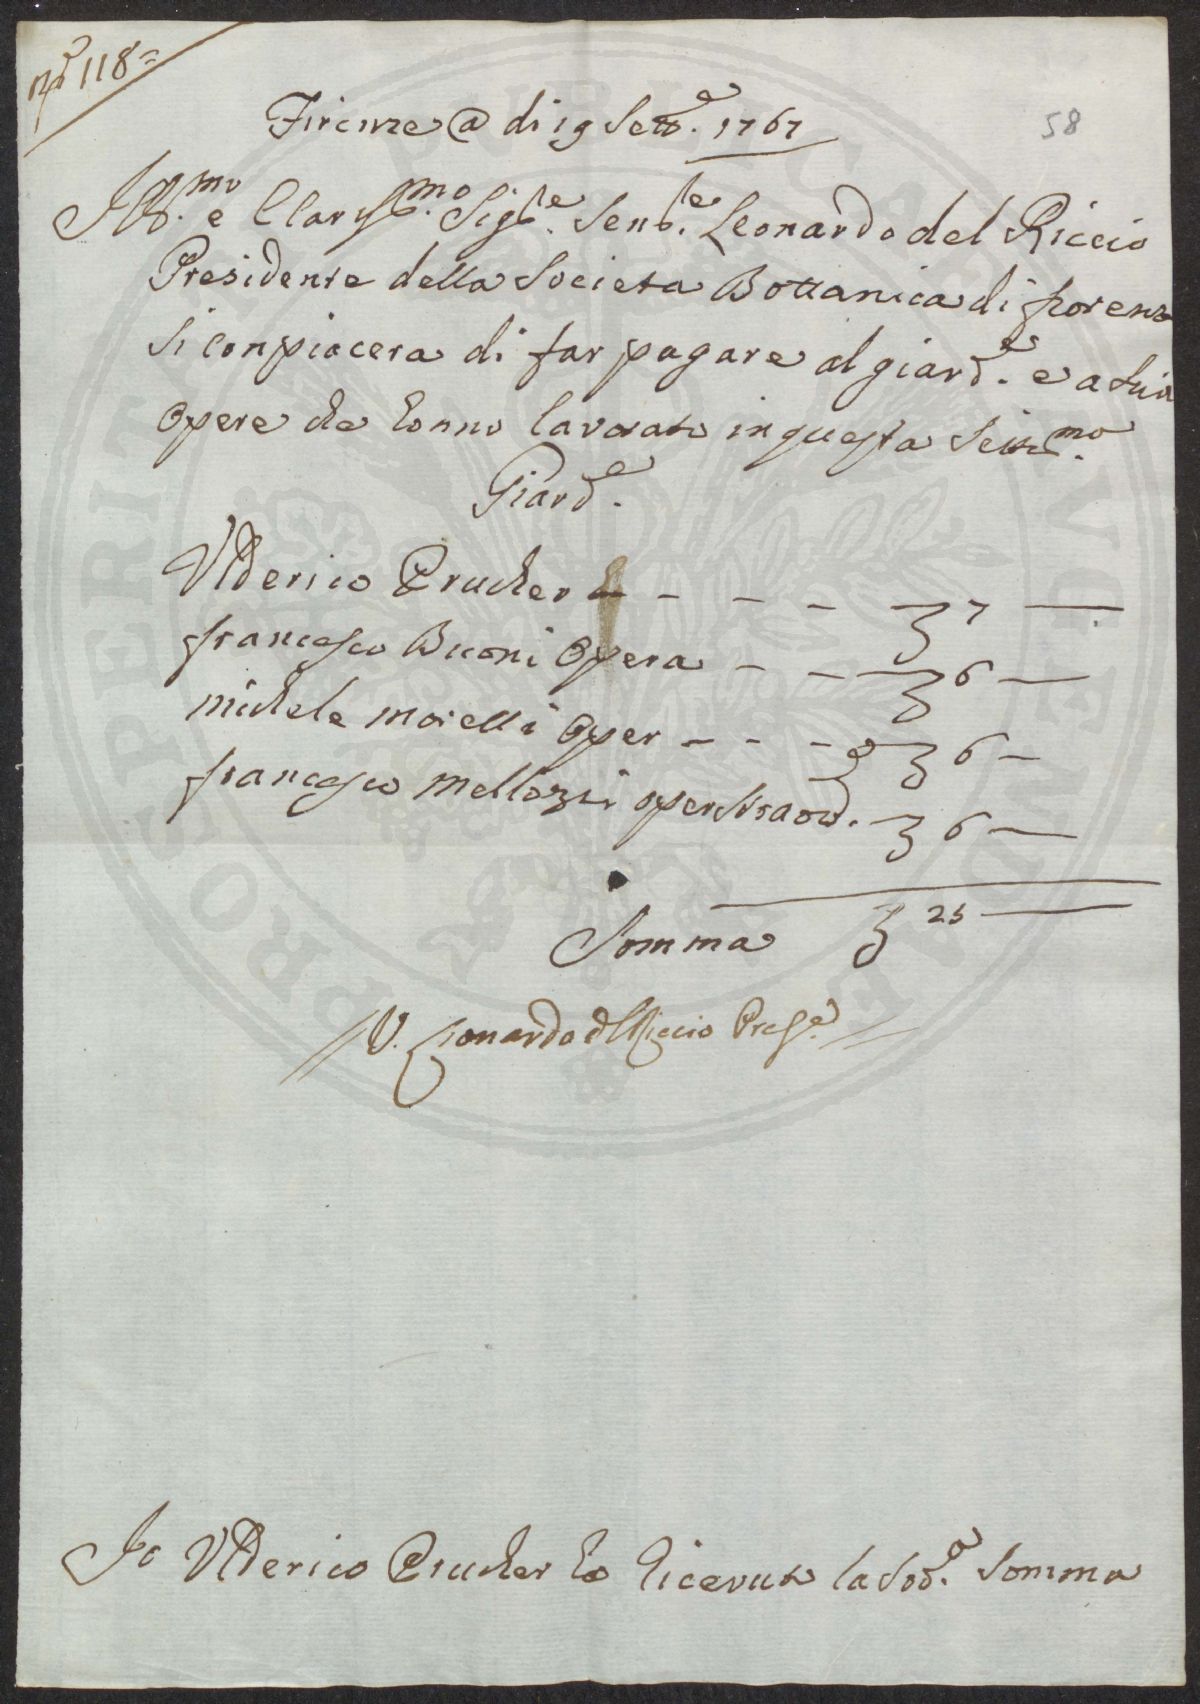 N.° 118=
58
Firenze @ di 19 Sett.e 1767
Ill.mo e Clariss.mo Sig.re Sen.re Leonardo del Riccio
Presidente della Societa Bottanica di fiorenza
Si conpiacera di far pagare al giard.e e a sui
Opere che hanno lavorato in questa Setti.mo
Giard.e
Vlderico Prucker - - - - 7 —
francesco Buoni Opera - - - 6 —
michele morelli Oper - - - 6 —
francesco mellozzi oper straord. - 6 —
Somma 25 —
// V. Lionardo del Riccio Presi.e //
Io Vlderico Prucker ho Ricevuto la Sod.a Somma
PROSPERITATI PUBLICAE AUGENDAE